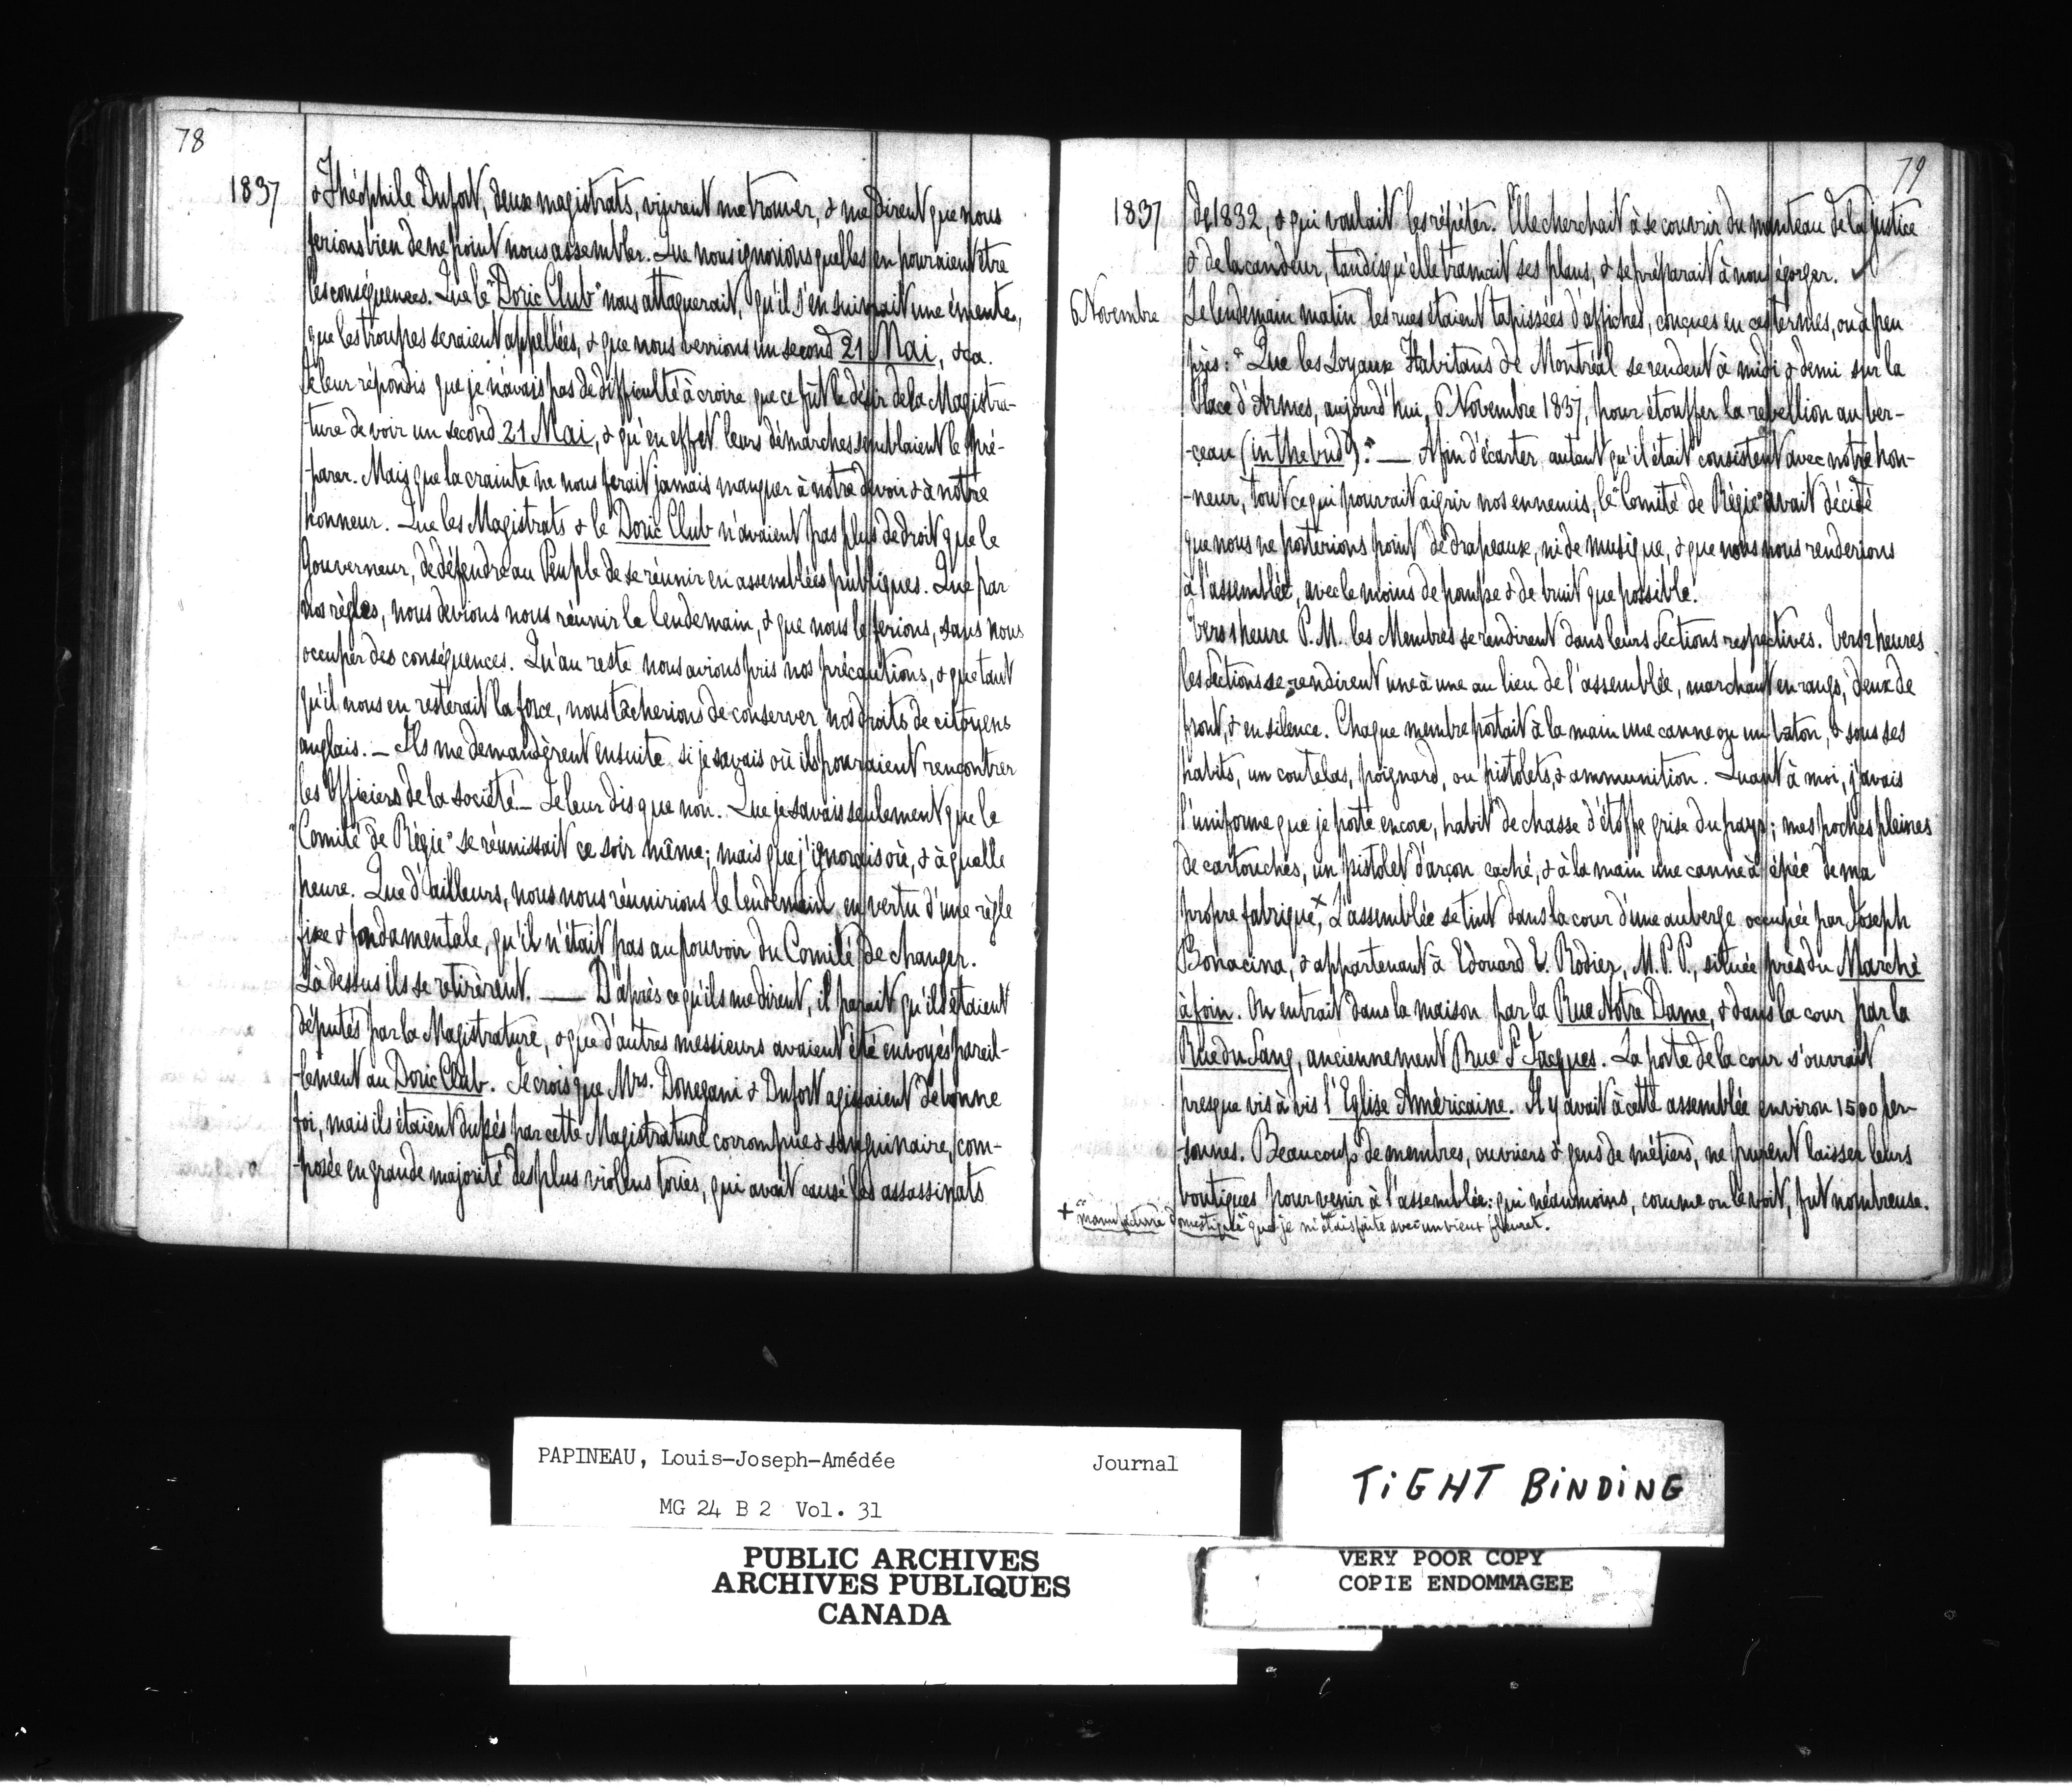 78
1837
& Théophile Dufort, deux magistrats, vinrent me trouver, & me dirent que nous
ferions bien de ne point nous assembler. Que nous ignorions quelles en pourraient être
les conséquences. Que le "Doric Club" nous attaquerait, qu'il s'en suivrait une émeute,
que les troupes seraient appellées, & que nous verrions un second 21 Mai, &ca.
Je leur répondis que je n'avais pas de difficulté à croire que ce fût le désir de la Magistra-
ture de voir un second 21 Mai, & qu'en effet leurs démarches semblaient le pré-
-parer. Mais que la crainte ne nous ferait jamais manquer à notre devoir & à notre
honneur. Que les Magistrats & le Doric Club n'avaient pas plus de droit que le
Gouverneur, de défendre au Peuple de se réunir en assemblées publiques. Que par
nos règles, nous devions nous réunir le lendemain, & que nous le ferions, sans nous
occuper des conséquences. Qu'au reste nous avions pris nos précautions, & que tant
qu'il nous en resterait la force, nous tâcherions de conserver nos droits de citoyens
anglais. — Ils me demandèrent ensuite si je savais où ils pourraient rencontrer
les Officiers de la société. — Je leur dis que non. Que je savais seulement que le
"Comité de Régie" se réunissait ce soir même; mais que j'ignorais où, & à quelle
heure. Que d'ailleurs, nous nous réunirions le lendemain en vertu d'une règle
fixe & fondamentale, qu'il n'était pas au pouvoir du Comité de changer.
Là dessus ils se retirèrent. — D'après ce qu'ils me dirent, il parait qu'ils étaient
députés par la Magistrature, & que d'autres messieurs avaient été envoyés pareil-
-lement au Doric Club. Je crois que Mrs. Donegani & Dufort agissaient de bonne
foi, mais ils étaient dupés par cette Magistrature corrompue & sanguinaire, com-
-posée en grande majorité des plus violens tories, qui avait causé les assassinats
79
1837
de 1832, & qui voulait les répéter. Elle cherchait à se couvrir du manteau de la justice
& de la candeur, tandis qu'elle tramait ses plans, & se préparait à nous égorger. ✓
6 Novembre
Le lendemain matin les rues étaient tapissées d'affiches, conçues en ces termes, ou à peu
près: "Que les Loyaux Habitans de Montréal se rendent à midi & demi sur la
Place d'Armes, aujourd'hui, 6 Novembre 1837, pour étouffer la rebellion au ber-
-ceau (in the bud)." — Afin d'écarter autant qu'il était consistent avec notre hon-
-neur, tout ce qui pourrait aigrir nos ennemis, le "Comité de Régie" avait décidé
que nous ne porterions point de drapeaux, ni de musique, & que nous nous renderions
à l'assemblée, avec le moins de pompe & de bruit que possible.
Vers 1 heure P.M. les Membres se rendirent dans leurs Sections respectives. Vers 2 heures
les Sections se rendirent une à une au lieu de l'assemblée, marchant en rangs, deux de
front, & en silence. Chaque membre portait à la main une canne ou un baton, & sous ses
habits, un coutelas, poignard, ou pistolets, & ammunition. Quant à moi, j'avais
l'uniforme que je porte encore, habit de chasse d'étoffe grise du pays; mes poches pleines
de cartouches, un pistolet d'arçon caché, & à la main une canne à épée de ma
propre fabrique.× L'assemblée se tint dans la cour d'une auberge occupée par Joseph
Bonacina, & appartenant à Edouard E. Rodier, M.P.P., située près du Marché
à foin. On entrait dans la maison par la Rue Notre Dame, & dans la cour par la
Rue du Sang, anciennement Rue St. Jacques. La porte de la cour s'ouvrait
presque vis à vis l'Eglise Américaine. Il y avait à cette assemblée environ 1500 per-
-sonnes. Beaucoup de membres, ouvriers & gens de métiers, ne purent laisser leurs
boutiques pour venir à l'assemblée: qui néanmoins, comme on le voit, fut nombreuse.
+ "manufacture domestique" que je m'étais faite avec un vieux fleuret.
PAPINEAU, Louis-Joseph-Amédée Journal
MG 24 B 2 Vol. 31
PUBLIC ARCHIVES
ARCHIVES PUBLIQUES
CANADA
TIGHT BINDING
VERY POOR COPY
COPIE ENDOMMAGEE
VERY POOR COPY